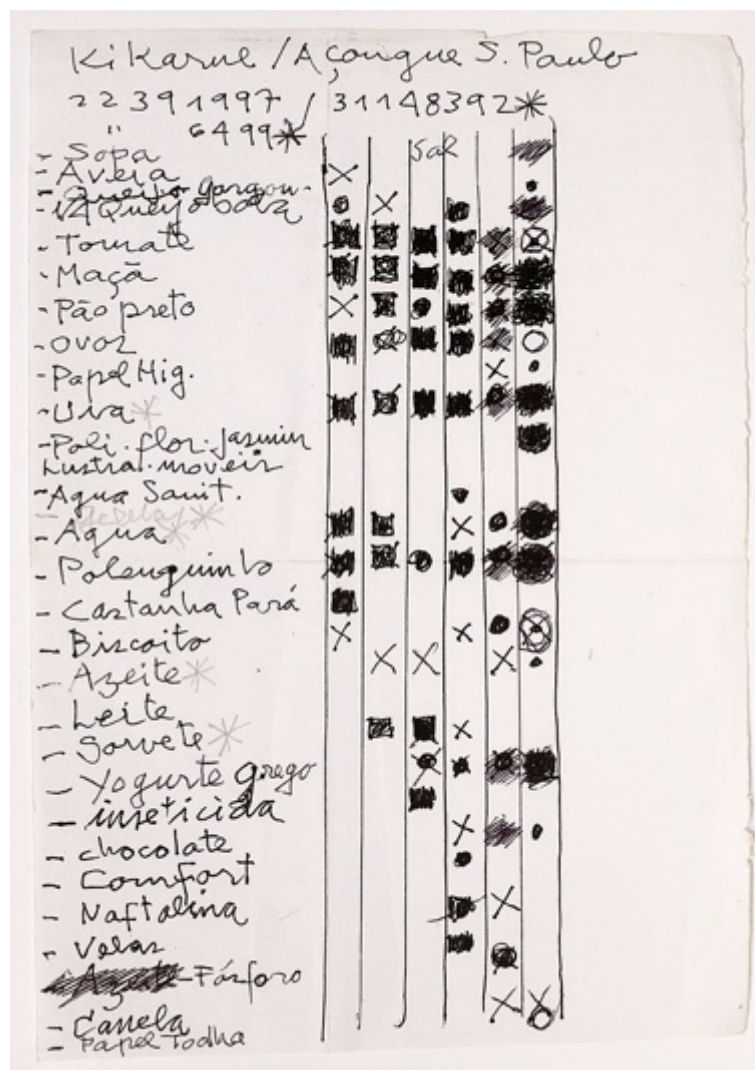 Kikarne / Açougue S. Paulo
22391997 / 31148392*
" 6499*
- Sopa Sal
- Aveia
- Queijo gorgon.
- Queijo bola
- Tomate
- Maçã
- Pão preto
- ovos
- Papel Hig.
- Uva *
- Poli. flor. jasmim
Lustra. moveis
- Agua Sanit.
- Agua *
- Polenguinho
- Castanha Pará
- Biscoito
- Azeite *
- Leite
- Sorvete *
- Yogurte grego
- inseticida
- chocolate
- Comfort
- Naftalina
- Velas
- Fósforo
- Canela
- Papel Toalha